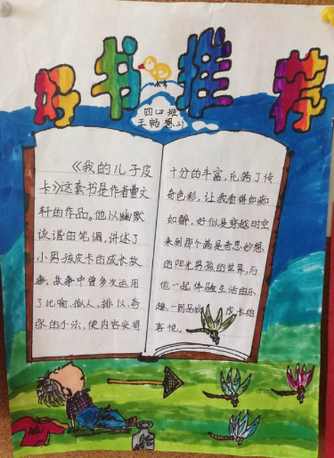 好书推荐
四口班
王畅恩
《我的儿子皮
卡》这套书是作者曹文
轩的作品。他以幽默
诙谐的笔调,讲述了
小男孩皮卡的成长故
事,故事中曾多次运用
了比喻、拟人、排比、夸
张的手法,使内容变得
十分的丰富,充满了传
奇色彩,让我看得如痴
如醉,好似是穿越时空
来到那个满是奇思妙想
的阳光男孩的世界,与
他一起体验生活的乐
趣,一同品
皮卡的
喜悦。